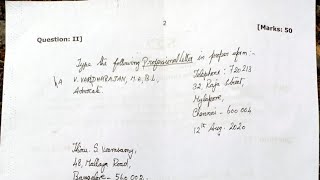 2
Question: II] [Marks: 50
Type the following Professional letter in proper form:-
V. VARDHARAJAN, M.A, B.L, Telephone: 720213
Advocate. 32, Raja Street,
Mylapore,
Chennai - 600 004
12th Aug. 2020
Thiru. S.
48, Mallaya Road,
Bangalore - 560 002.